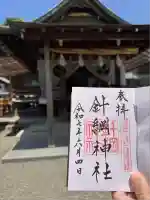 奉拝
針綱神社
令和七年六月四日